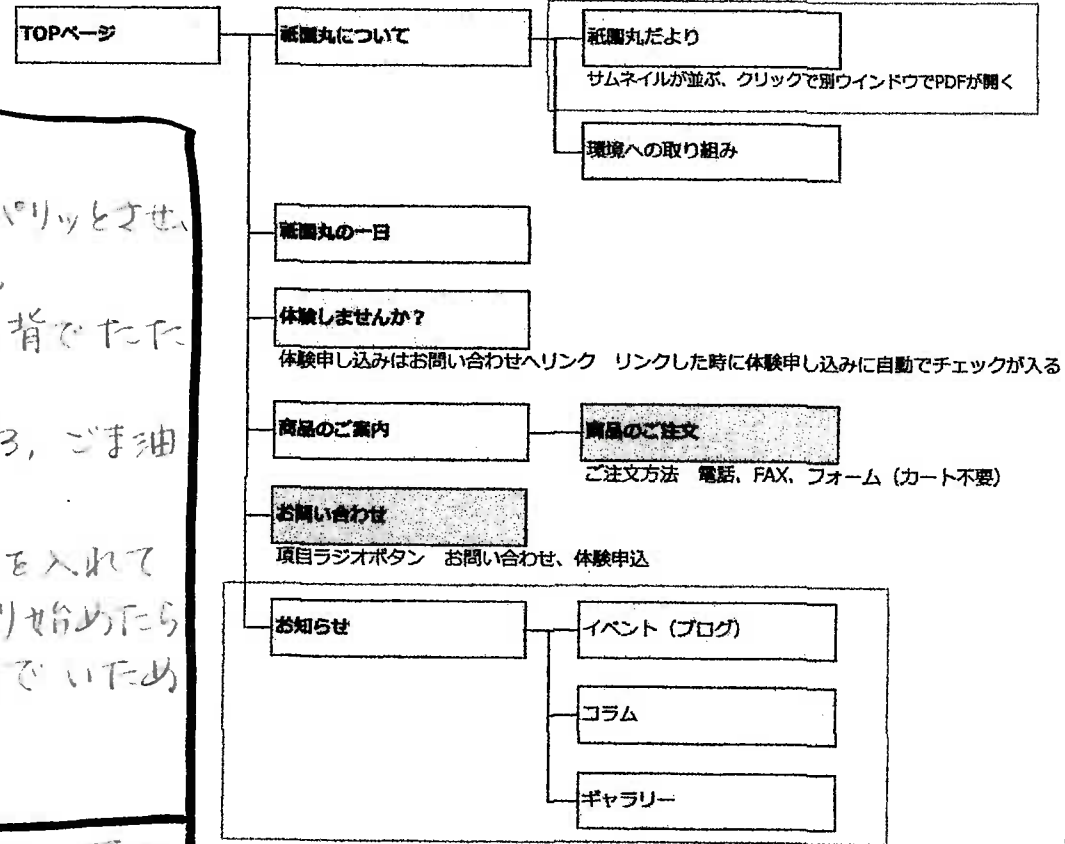 TOPページ
祇園丸について
祇園丸だより
サムネイルが並ぶ、クリックで別ウインドウでPDFが開く
環境への取り組み
祇園丸の一日
体験しませんか？
体験申し込みはお問い合わせへリンク　リンクした時に体験申し込みに自動でチェックが入る
商品のご案内
商品のご注文
ご注文方法　電話、FAX、フォーム（カート不要）
お問い合わせ
項目ラジオボタン　お問い合わせ、体験申込
お知らせ
イベント（ブログ）
コラム
ギャラリー
パリッとさせ、
背でたた
3, ごま油
を入れて
り始めたら
でいため